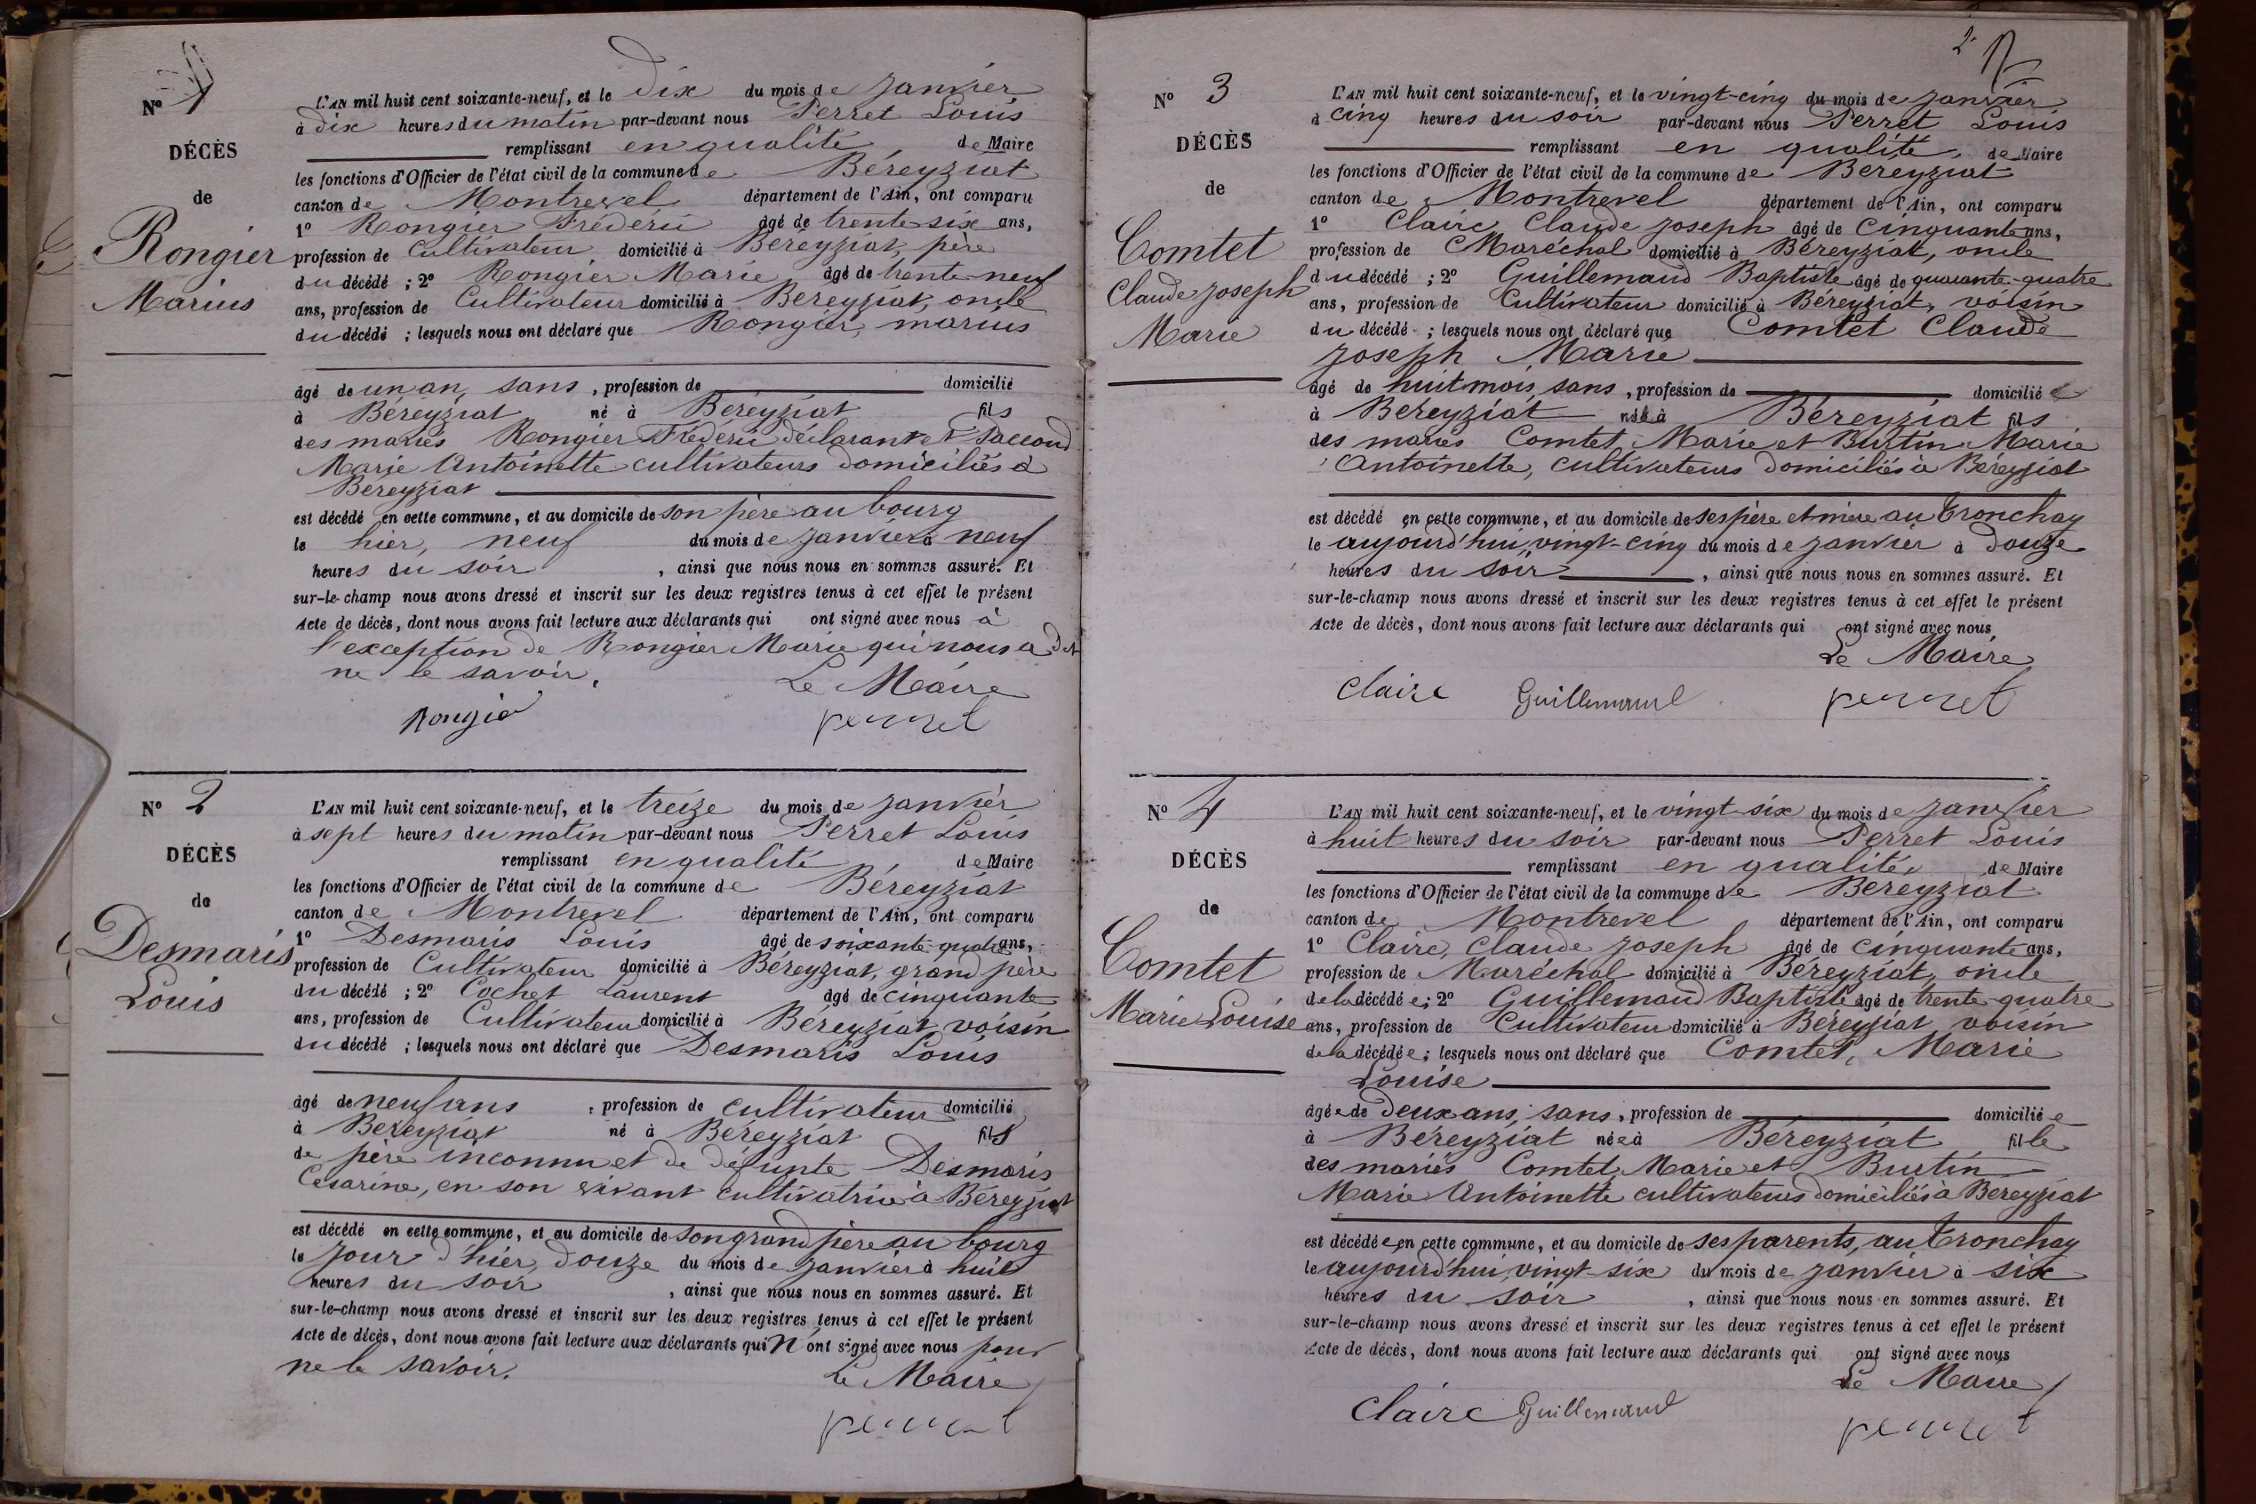 N° 1
DÉCÈS
de
Rongier
Marius
L'AN mil huit cent soixante-neuf, et le dix du mois de janvier
à dix heures du matin par-devant nous Perret Louis
remplissant en qualité de Maire
les fonctions d'Officier de l'état civil de la commune de Béreyziat
canton de Montrevel département de l'Ain, ont comparu
1° Rongier Fréderic âgé de trente six ans,
profession de Cultivateur domicilié à Béreyziat, père
du décédé ; 2° Rongier Marie âgé de trente neuf
ans, profession de Cultivateur domicilié à Béreyziat, oncle
du décédé ; lesquels nous ont déclaré que Rongier, marius
âgé de un an, sans , profession de domicilié
à Béreyziat né à Béreyziat fils
des mariés Rongier Fréderic déclarant et Paccoud
Marie Antoinette cultivateurs domiciliés à
Béreyziat
est décédé en cette commune, et au domicile de son père au bourg
le hier, neuf du mois de janvier à neuf
heures du soir , ainsi que nous nous en sommes assuré. Et
sur-le-champ nous avons dressé et inscrit sur les deux registres tenus à cet effet le présent
Acte de décès, dont nous avons fait lecture aux déclarants qui ont signé avec nous à
l'exception de Rongier Marie qui nous a dit
ne le savoir.
Le Maire
Rongier
perret
N° 2
DÉCÈS
de
Desmaris
Louis
L'AN mil huit cent soixante-neuf, et le treize du mois de janvier
à sept heures du matin par-devant nous Perret Louis
remplissant en qualité de Maire
les fonctions d'Officier de l'état civil de la commune de Béreyziat
canton de Montrevel département de l'Ain, ont comparu
1° Desmaris Louis âgé de soixante-quatre ans,
profession de Cultivateur domicilié à Béreyziat, grand père
du décédé ; 2° Cochet Laurent âgé de cinquante
ans, profession de Cultivateur domicilié à Béreyziat, voisin
du décédé ; lesquels nous ont déclaré que Desmaris Louis
âgé de neuf ans , profession de cultivateur domicilié
à Béreyziat né à Béreyziat fils
de père inconnu et de défunte Desmaris
Césarine, en son vivant cultivatrice à Béreyziat
est décédé en cette commune, et au domicile de son grand père au bourg
le jour d'hier, douze du mois de janvier à huit
heures du soir , ainsi que nous nous en sommes assuré. Et
sur-le-champ nous avons dressé et inscrit sur les deux registres tenus à cet effet le présent
Acte de décès, dont nous avons fait lecture aux déclarants qui n'ont signé avec nous pour
ne le savoir.
le Maire
perret
2e
N° 3
DÉCÈS
de
Comtet
Claude Joseph
Marie
L'AN mil huit cent soixante-neuf, et le vingt-cinq du mois de janvier
à cinq heures du soir par-devant nous Perret Louis
remplissant en qualité, de Maire
les fonctions d'Officier de l'état civil de la commune de Béreyziat
canton de Montrevel département de l'Ain, ont comparu
1° Claire, Claude Joseph âgé de cinquante ans,
profession de Maréchal domicilié à Béreyziat, oncle
du décédé ; 2° Guillemaud Baptiste âgé de quarante-quatre
ans, profession de Cultivateur domicilié à Béreyziat, voisin
du décédé ; lesquels nous ont déclaré que Comtet Claude
Joseph Marie
âgé de huit mois, sans , profession de domicilié
à Béreyziat né à Béreyziat fils
des mariés Comtet, Marie et Burtin Marie
Antoinette, cultivateurs domiciliés à Béreyziat
est décédé en cette commune, et au domicile de ses père et mère au Tronchay
le aujourd'hui, vingt-cinq du mois de janvier à douze
heures du soir , ainsi que nous nous en sommes assuré. Et
sur-le-champ nous avons dressé et inscrit sur les deux registres tenus à cet effet le présent
Acte de décès, dont nous avons fait lecture aux déclarants qui ont signé avec nous
Le Maire
Claire Guillemaud perret
N° 4
DÉCÈS
de
Comtet
Marie Louise
L'AN mil huit cent soixante-neuf, et le vingt-six du mois de janvier
à huit heures du soir par-devant nous Perret Louis
remplissant en qualité, de Maire
les fonctions d'Officier de l'état civil de la commune de Béreyziat
canton de Montrevel département de l'Ain, ont comparu
1° Claire, Claude Joseph âgé de cinquante ans,
profession de Maréchal domicilié à Béreyziat, oncle
de la décédée ; 2° Guillemaud Baptiste âgé de trente-quatre
ans, profession de Cultivateur domicilié à Béreyziat, voisin
de la décédée ; lesquels nous ont déclaré que Comtet, Marie
Louise
âgée de deux ans, sans , profession de domiciliée
à Béreyziat née à Béreyziat fille
des mariés Comtet, Marie et Burtin
Marie Antoinette cultivateurs domiciliés à Béreyziat
est décédée en cette commune, et au domicile de ses parents, au Tronchay
le aujourd'hui, vingt-six du mois de janvier à six
heures du soir , ainsi que nous nous en sommes assuré. Et
sur-le-champ nous avons dressé et inscrit sur les deux registres tenus à cet effet le présent
Acte de décès, dont nous avons fait lecture aux déclarants qui ont signé avec nous
Le Maire
Claire Guillemaud perret